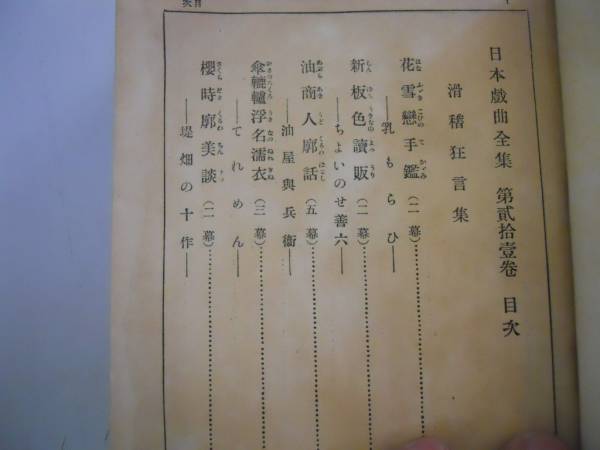 日本戯曲全集 第貳拾壹卷 目次
滑稽狂言集
花雪戀手鑑（二幕）
──乳もらひ──
新板色讀販（二幕）
──ちよいのせ善六──
油商人廓話（五幕）
──油屋與兵衞──
傘轆轤浮名濡衣（三幕）
──てれめん──
櫻時廓美談（二幕）
──堤畑の十作──
目次